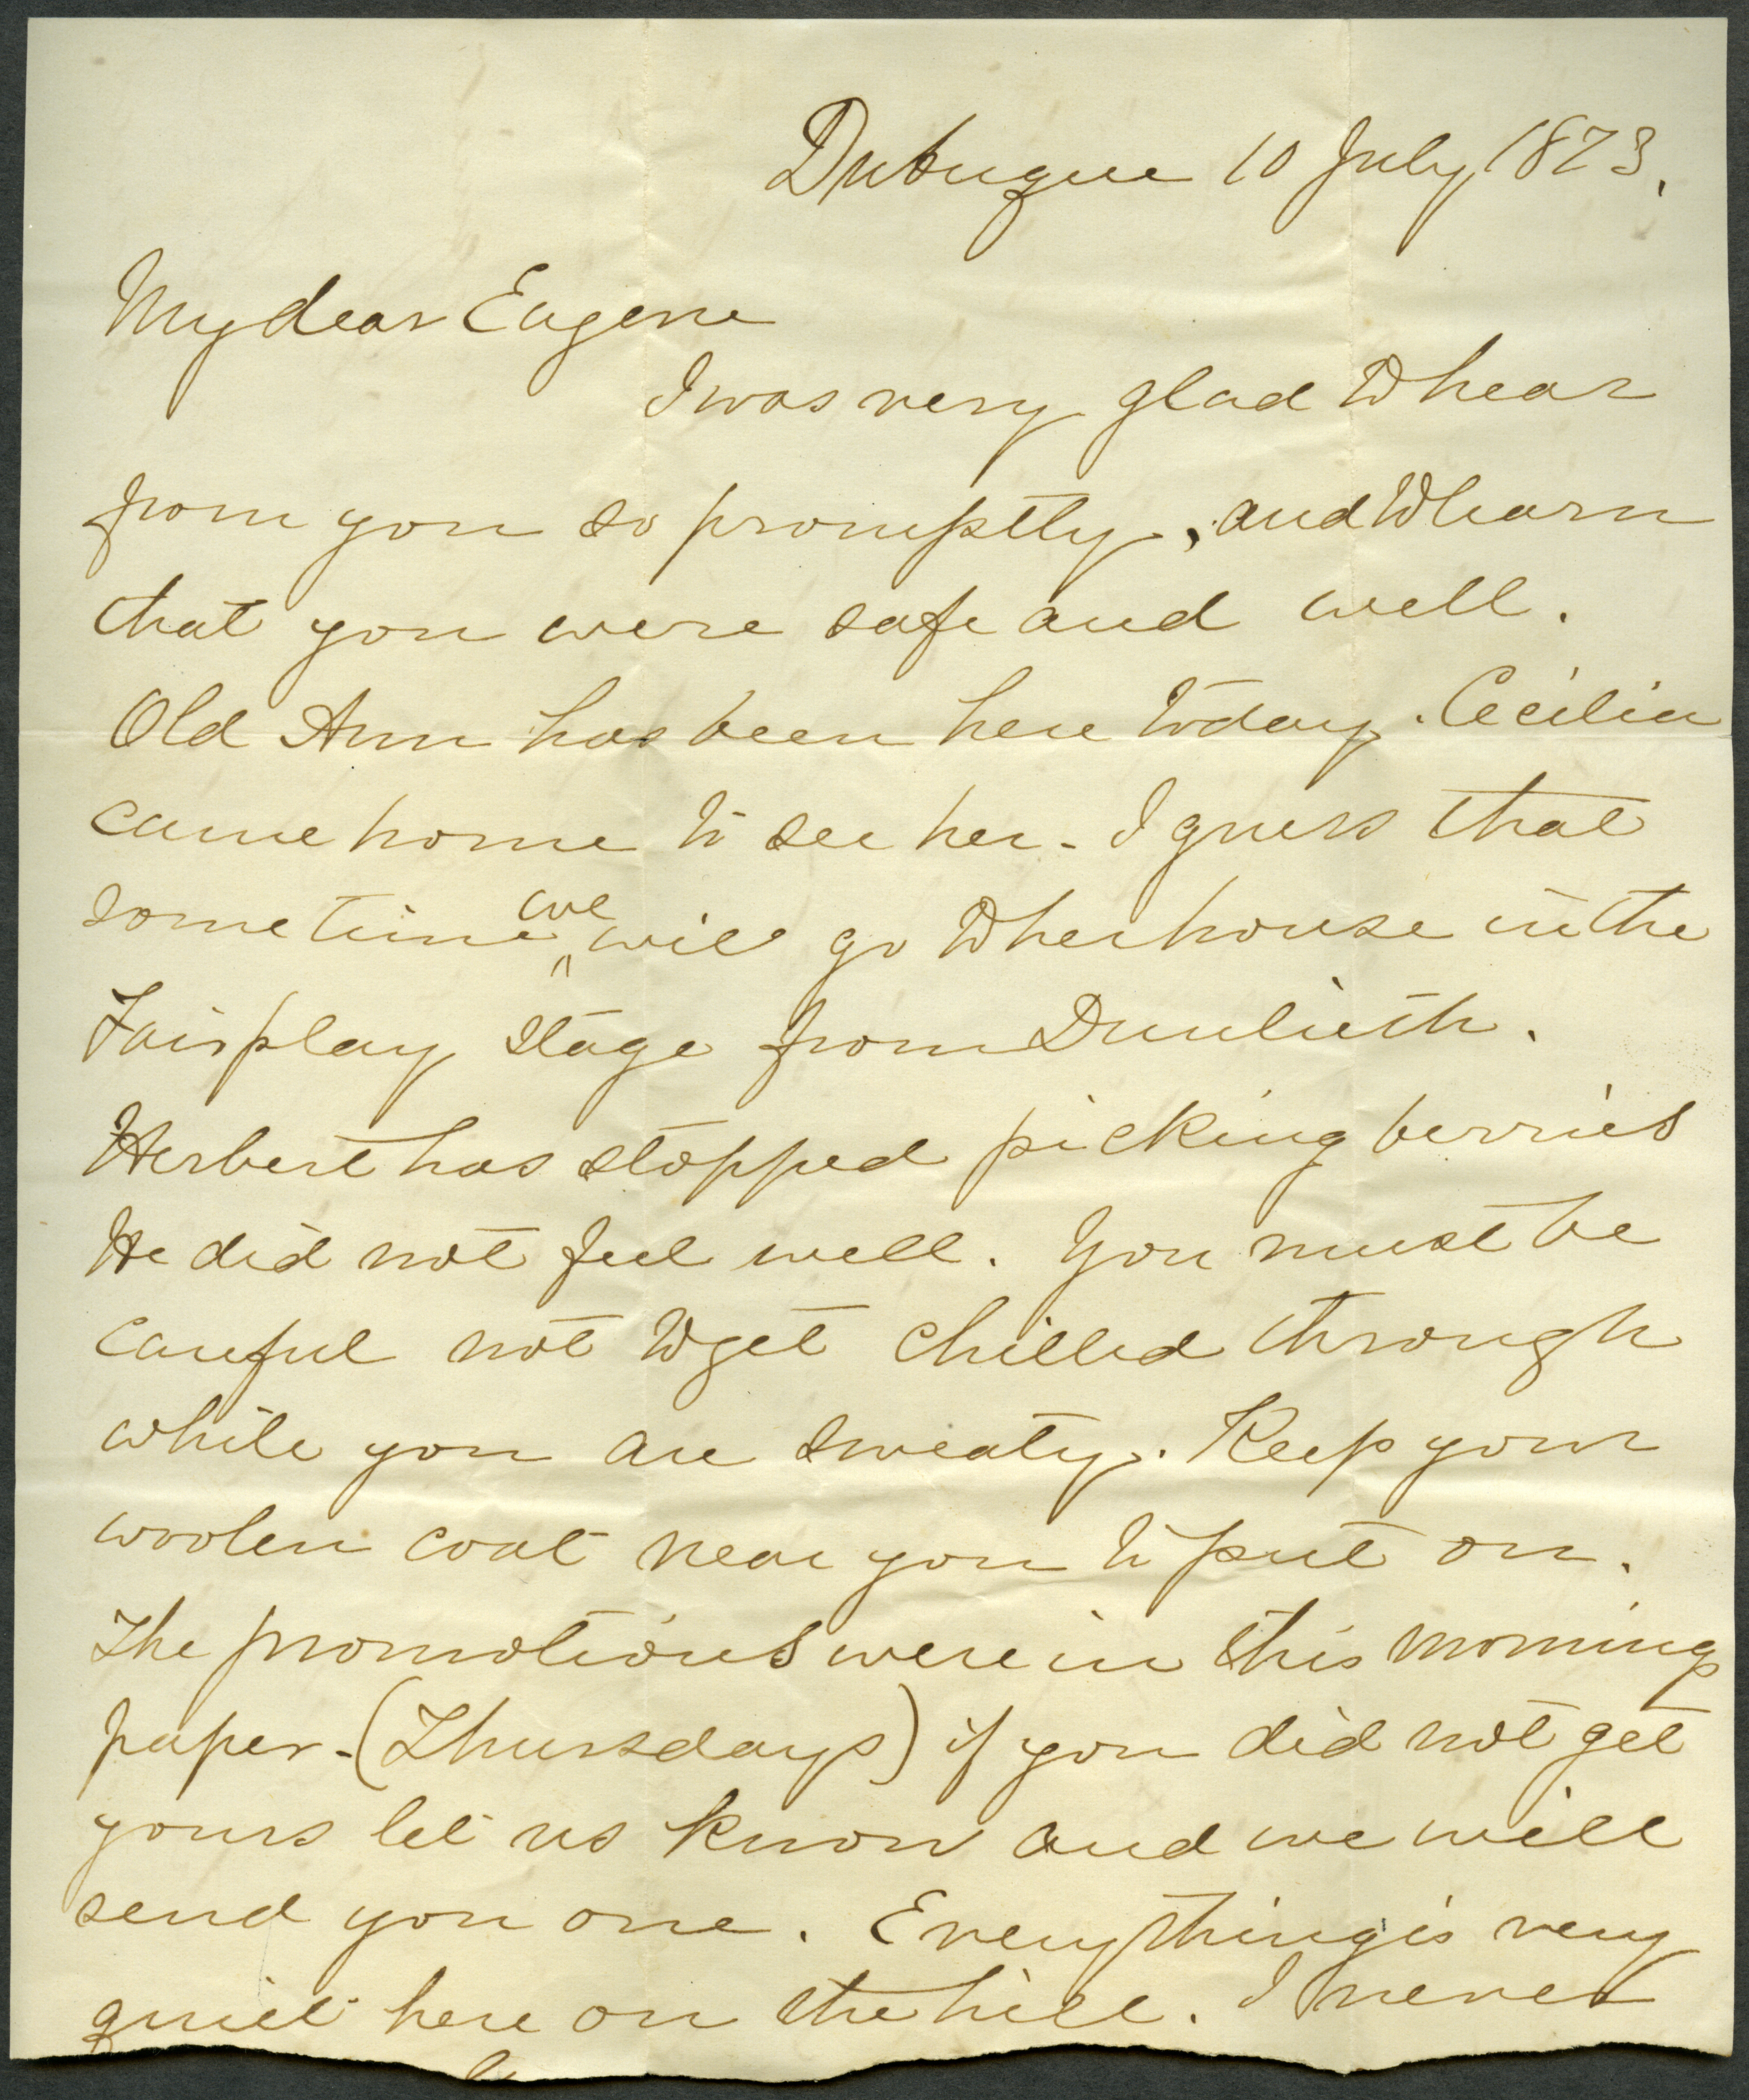 Dubuque 10 July, 1873.
My dear Eugene
I was very glad to hear
from you so promptly, and to learn
that you were safe and well.
Old Ann has been here today. Cecilia
came home to see her. I guess that
sometime we will go to her house in the
Fairplay stage from Dunlieth.
Herbert has stopped picking berries
He did not feel well. You must be
careful not to get chilled through
while you are sweaty. Keep your
woolen coat near you to put on.
The promotions were in this mornings
paper. (Thursdays) if you did not get
yours let us know and we will
send you one. Everything is very
quiet here on the hill. I never